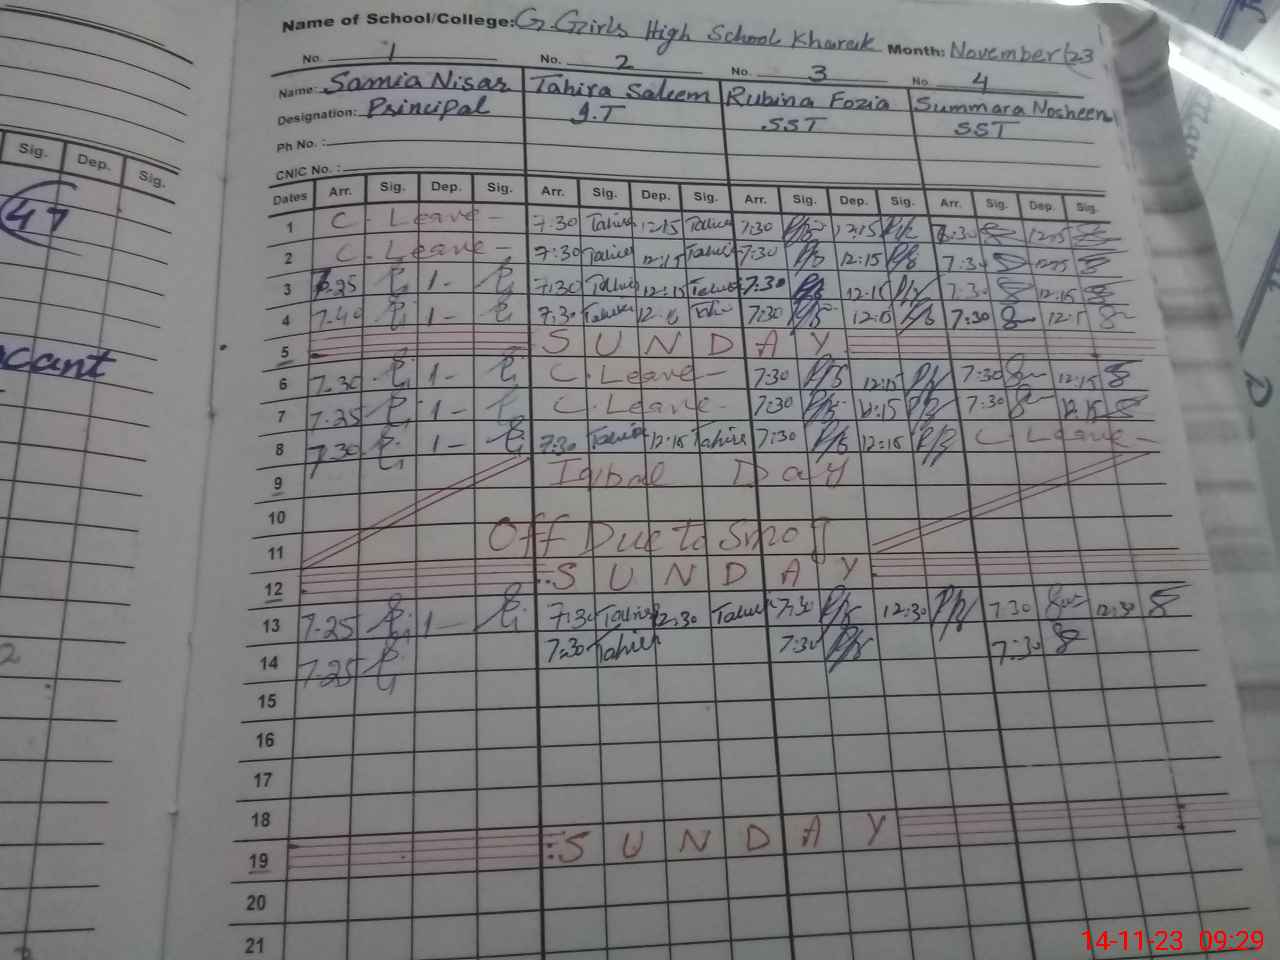 Name of School/College: G. Girls High School Kharak Month: November/23
No. 1 No. 2 No. 3 No. 4
Name: Samia Nisar Tahira Saleem Rubina Fozia Summara Nosheen
Designation: Principal S.T SST SST
Ph No. :
CNIC No. :
Dates Arr. Sig. Dep. Sig. Arr. Sig. Dep. Sig. Arr. Sig. Dep. Sig. Arr. Sig. Dep. Sig.
1 C. Leave - 7:30 Tahira 12:15 Tahira 7:30 12:15 12:15
2 C. Leave - 7:30 Tahira 12:15 Tahira 7:30 12:15 7:30 12:15
3 7.25 1- 7:30 Tahira 12:15 Tahira 7:30 12:15 7:30 12:15
4 7.40 1- 7:30 Tahira 7:30 12:15 7:30 12:15
5 S U N D A Y
6 7.30 1- C. Leave - 7:30 12:15 7:30 12:15
7 7.25 1- C. Leave - 7:30 12:15 7:30 12:15
8 7.30 1- 7:30 Tahira 12:15 Tahira 7:30 12:15 C. Leave -
9 Iqbal Day
10
11 Off Due to Smog
12 S U N D A Y
13 7.25 1- 7:30 Tahira 12:30 Tahira 7:30 12:30 7:30 12:30
14 7.25 7:30 Tahira 7:30 7:30
15
16
17
18
19 S U N D A Y
20
21
Sig. Dep. Sig.
47
cant
14-11-23 09:29